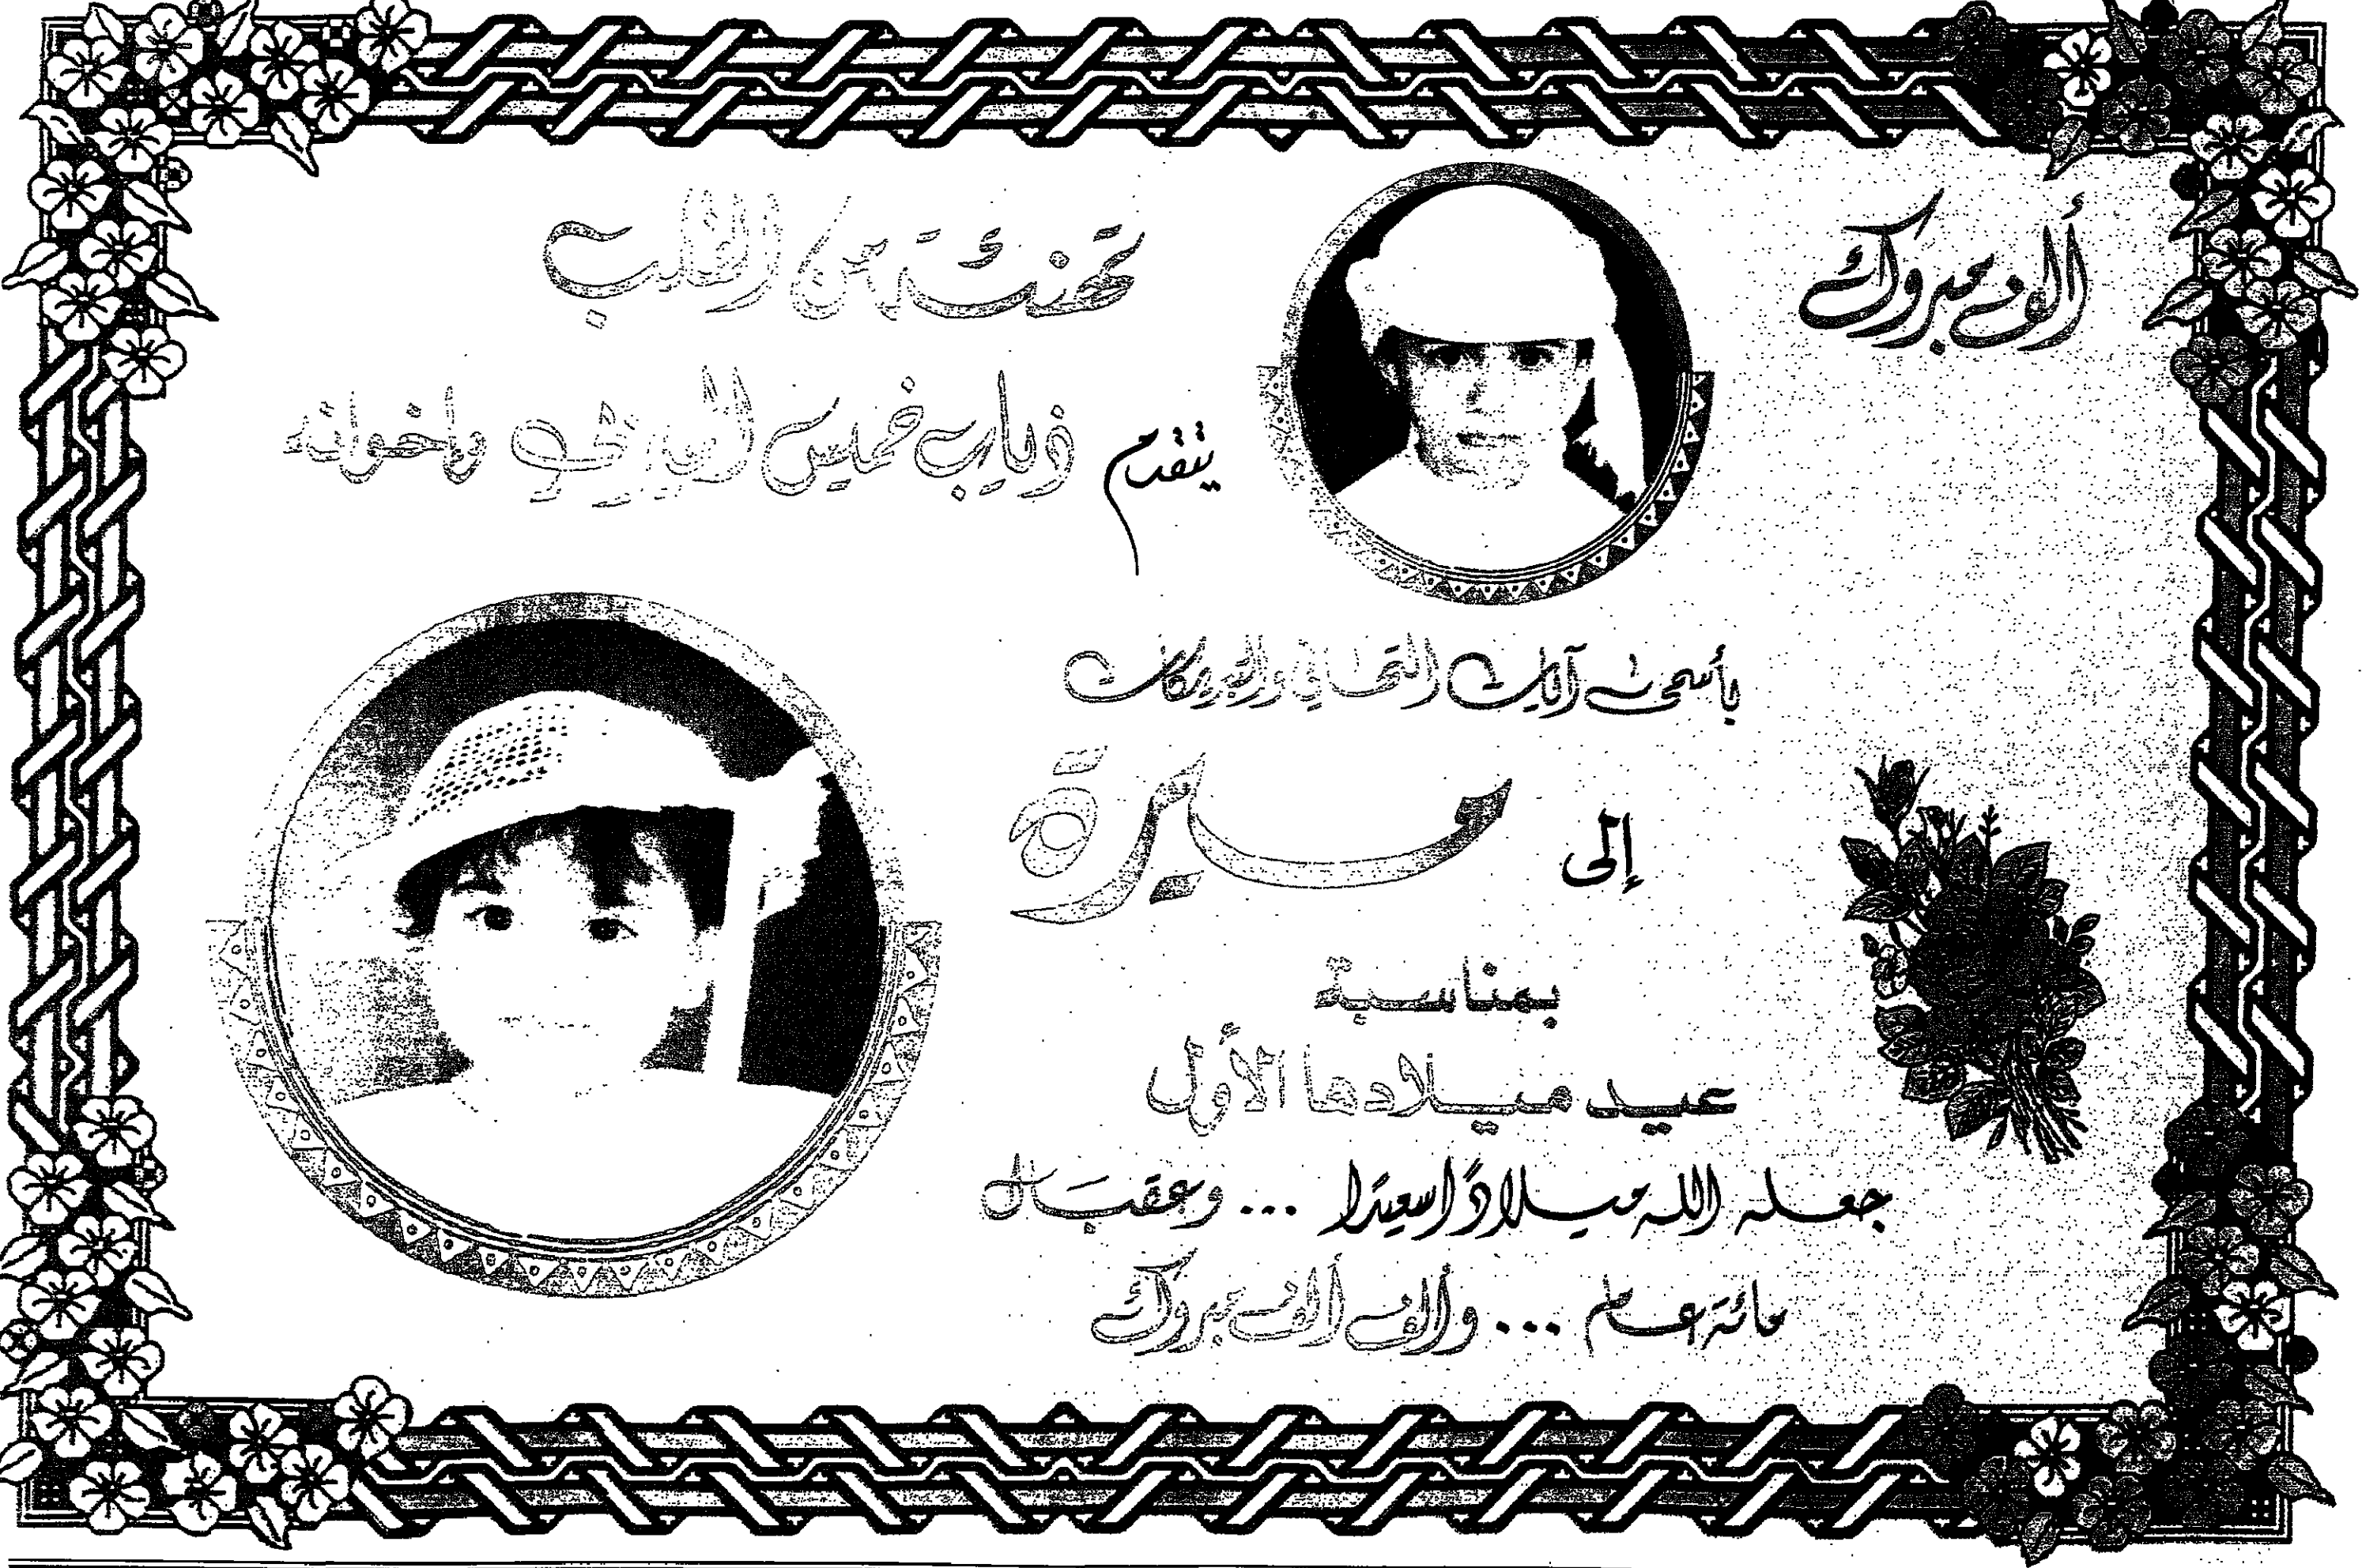 ألف مبروك
تهنئة من القلب
يتقدم ذياب خميس وإخوانه
بأسمى آيات التهاني والتبريكات
إلى ميرة
بمناسبة
عيد ميلادها الأول
جعله الله ميلاداً سعيدا ... وعقبال
مائة عام ... وألف ألف مبروك